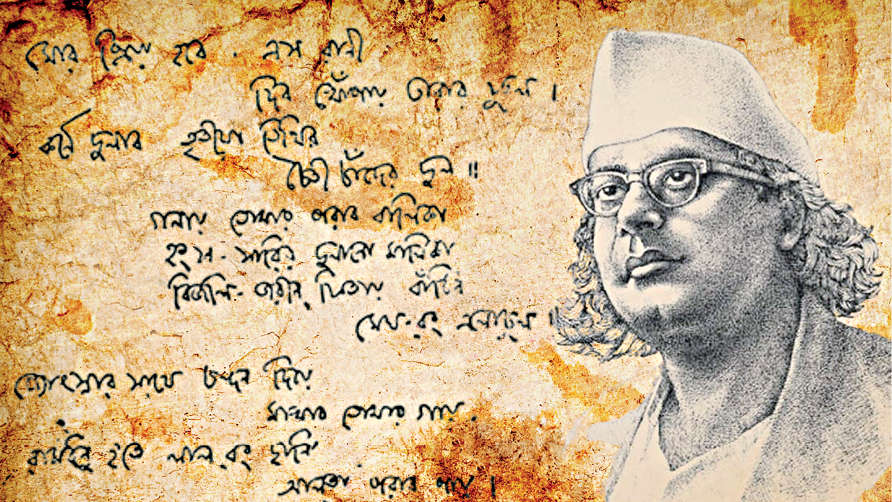 মোর প্রিয়া হবে - এস রানী
দিব খোঁপায় তারার ফুল ।
কর্ণে দুলাব তৃতীয়া তিথির
চৈতী চাঁদের দুল ॥
গলায় তোমার পরাব বালিকা
হংস - সারির দুলানো মালিকা
বিজলি - জরীন্ ফিতায় বাঁধিব
মেঘ - রং এলোচুল ॥
জ্যোৎস্নার সাথে চন্দন দিয়ে
মাখাব তোমার গায়,
রামধনু হতে লাল রং ছানি'
আলতা পরাব পায় ।